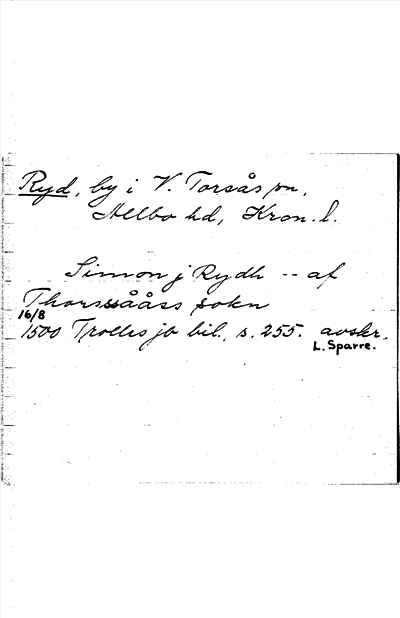 Ryd, by i V. Torsås sn,
Allbo hd, Kron. l.
Simon j Rydh -- af
Thorssååss sokn
16/8
1500 Trolles jb bil., s. 255. avskr.
L. Sparre.